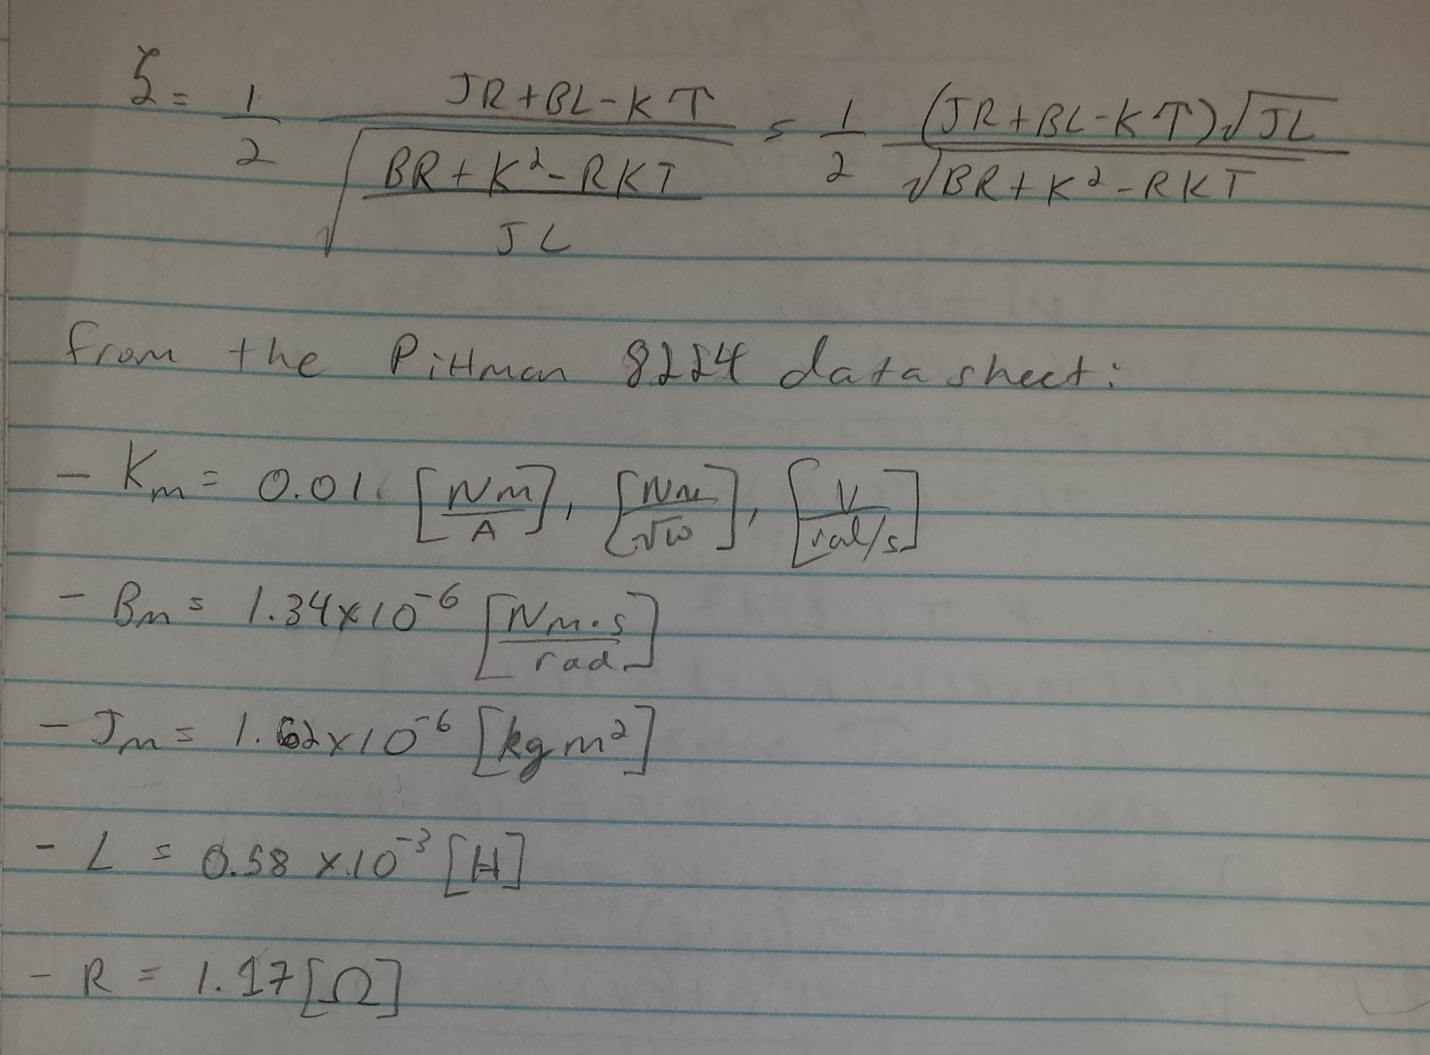 ζ = 1/2 (JR + BL - KT)/√((BR + K² - RKT)/(JL)) = 1/2 ((JR + BL - KT)√JL)/√(BR + K² - RKT)
from the Pittman 8224 datasheet:
- Km = 0.01 [Nm/A], [Nm/√w], [V/rad/s]
- Bm = 1.34×10⁻⁶ [Nm·s/rad]
- Jm = 1.62×10⁻⁶ [kgm²]
- L = 0.58 ×10⁻³ [H]
- R = 1.17 [Ω]